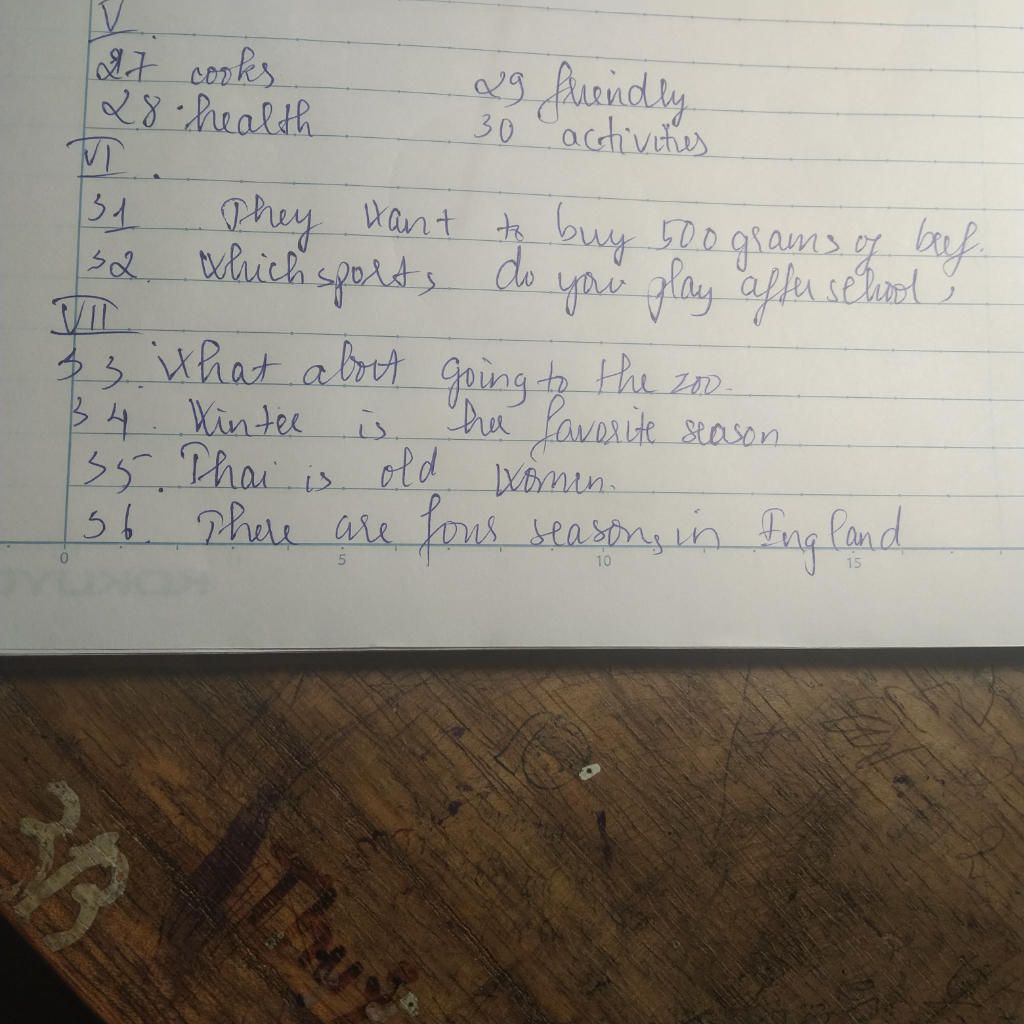 V
27 cooks 29 friendly
28. health 30 activities
VI.
31 They want to buy 500 grams of beef.
32. Which sports do you play after school,
VII
33. What about going to the zoo.
34. Winter is the favorite season
35. Thai is old women.
36. There are four seasons in England
0 5 10 15